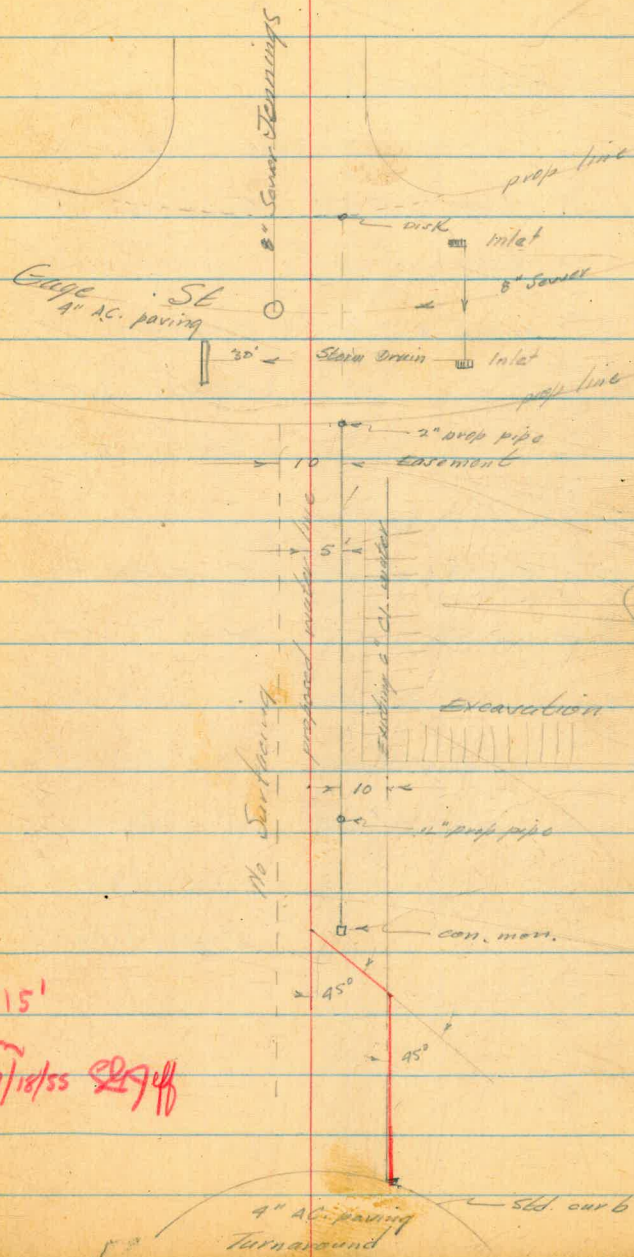 8" Sewer Jennings
prop line
Disk
Inlet
8" Sewer
Gage St
4" A.C. paving
30'
Storm Drain
Inlet
prop line
2" prop pipe
10
Easement
5'
proposed water line
Existing 6" CI. water
No Surfacing
Excavation
10
prop pipe
con. mon.
45°
15'
45°
/18/55
Std. curb
4" A.C. paving
Turnaround